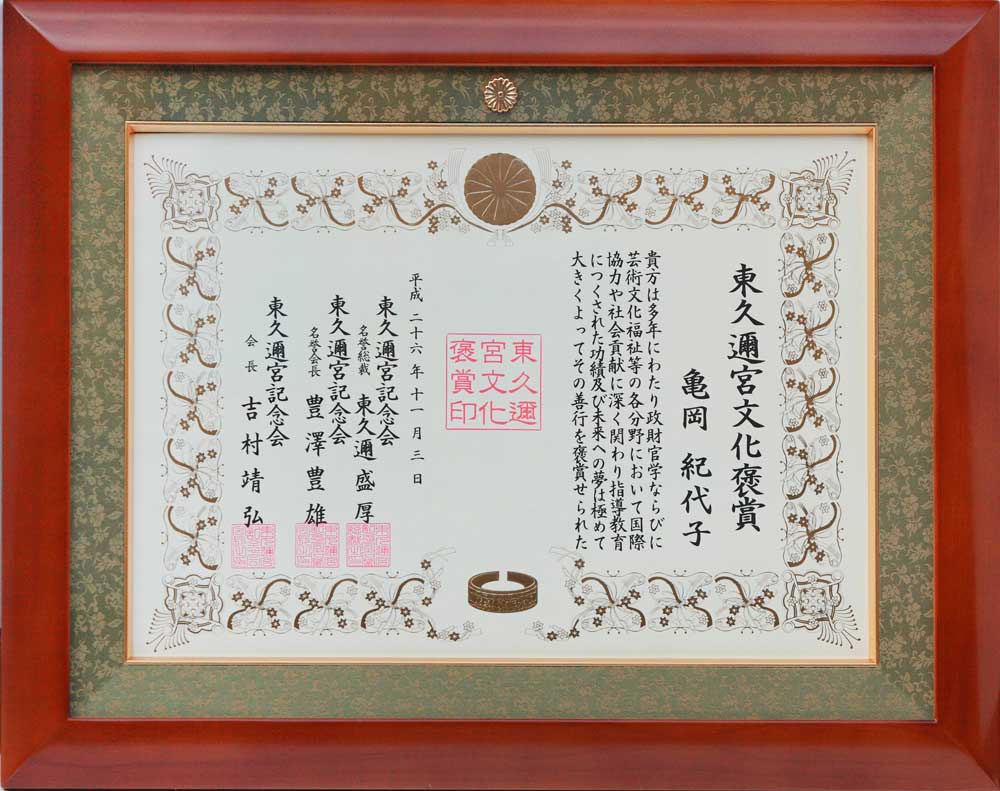 東久邇宮文化褒賞
亀岡 紀代子
貴方は多年にわたり政財官学ならびに
芸術文化福祉等の各分野において国際
協力や社会貢献に深く関わり指導教育
につくされた功績及び未来への夢は極めて
大きくよってその善行を褒賞せられた
東久邇
宮文化
褒賞印
平成二十六年十一月三日
東久邇宮記念会
名誉総裁 東久邇盛厚
東久邇宮記念会
名誉会長 豊澤豊雄
東久邇宮記念会
会長 吉村靖弘